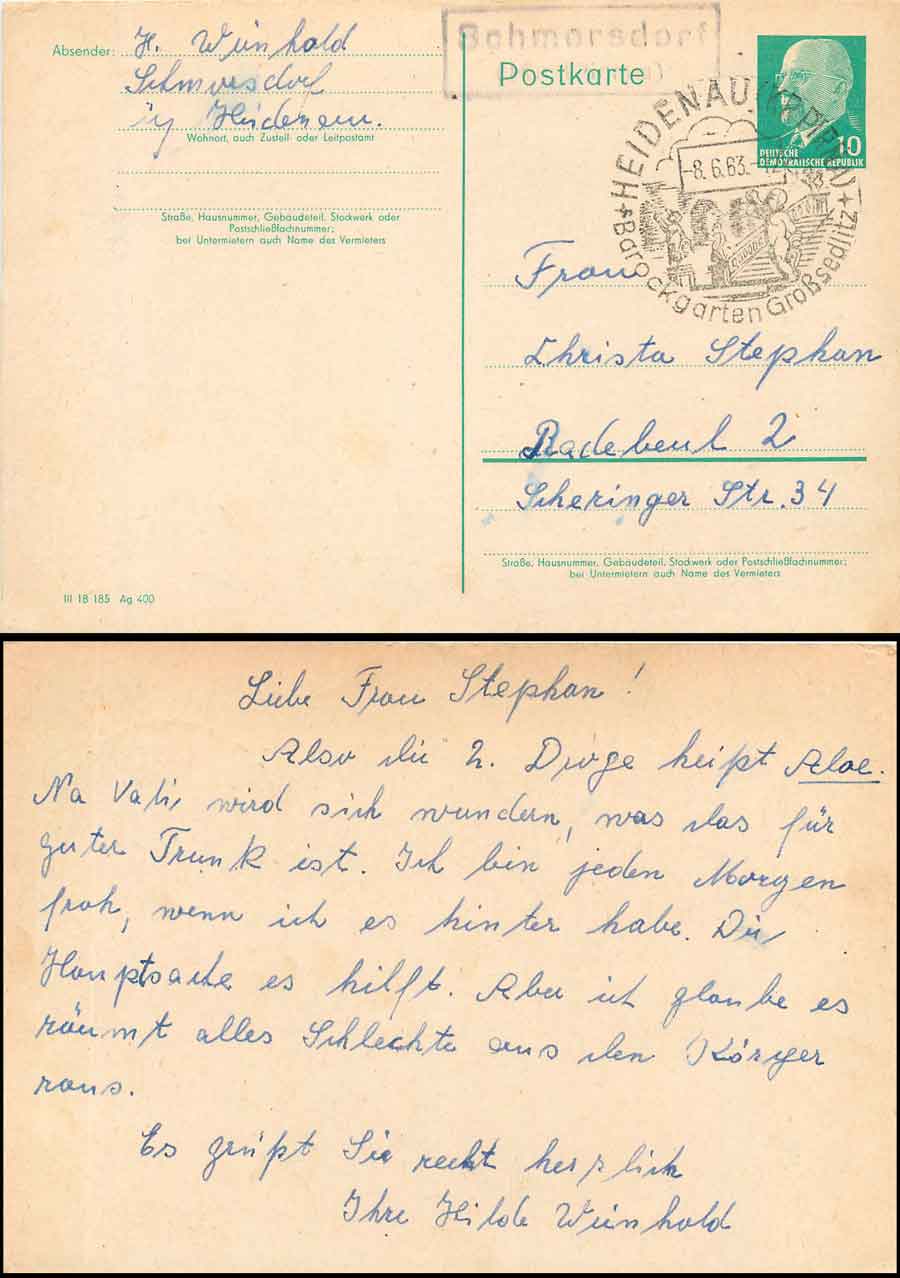 Absender: H. Weinhold
Schmorsdorf
üg Heidenau.
Wohnort, auch Zustell- oder Leitpostamt
Straße, Hausnummer, Gebäudeteil, Stockwerk oder
Postschließfachnummer;
bei Untermietern auch Name des Vermieters
III 18 185 Ag 400
Schmorsdorf
Postkarte
10
DEUTSCHE
DEMOKRATISCHE REPUBLIK
HEIDENAU (KR PIRNA)
-8.6.63.-12
Barockgarten Großsedlitz
Frau
Christa Stephan
Radebeul 2
Scheringer Str. 34
Straße, Hausnummer, Gebäudeteil, Stockwerk oder Postschließfachnummer;
bei Untermietern auch Name des Vermieters
Liebe Frau Stephan!
Also die 2. Droge heißt Aloe.
Na Vati, wird sich wundern, was das für
guter Trunk ist. Ich bin jeden Morgen
froh, wenn ich es hinter habe. Die
Hauptsache es hilft. Aber ich glaube es
räumt alles Schlechte aus den Körper
raus.
Es grüßt Sie recht herzlich
Ihre Hilde Weinhold